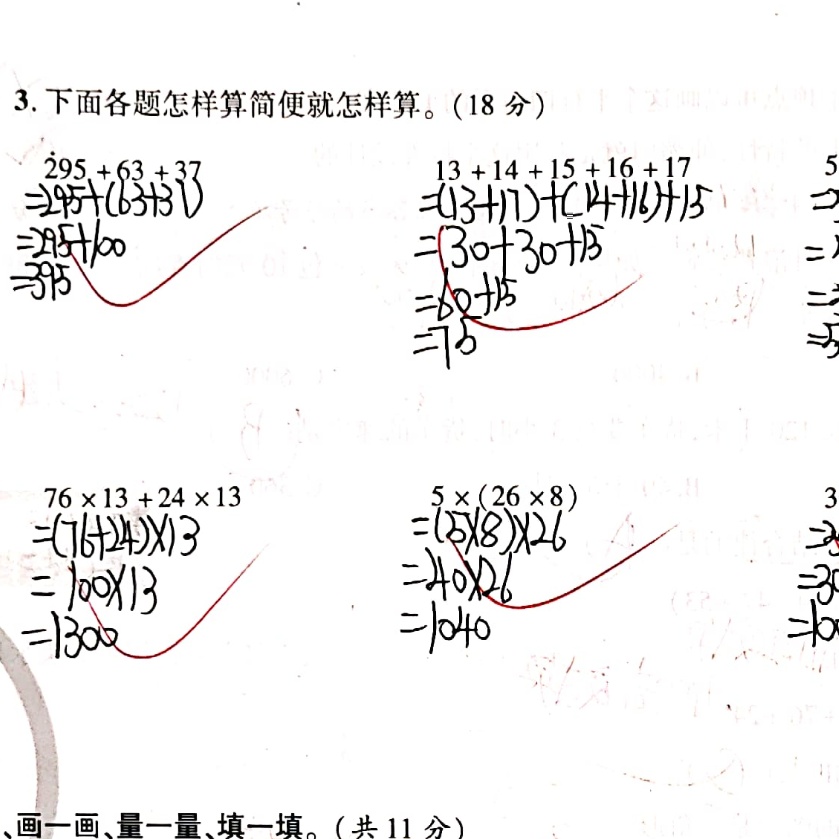 3. 下面各题怎样算简便就怎样算。(18 分)
295 + 63 + 37
=295+(63+37)
=295+100
=395
13 + 14 + 15 + 16 + 17
=(13+17)+(14+16)+15
=30+30+15
=60+15
=75
5
=
=
=
=5
76 × 13 + 24 × 13
=(76+24)×13
=100×13
=1300
5 × (26 × 8)
=(5×8)×26
=40×26
=1040
3
=3
=30
=100
、画一画、量一量、填一填。(共 11 分)